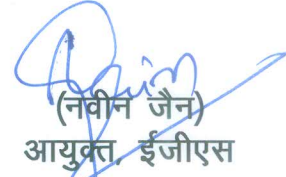 (नवीन जैन)
आयुक्त, ईजीएस